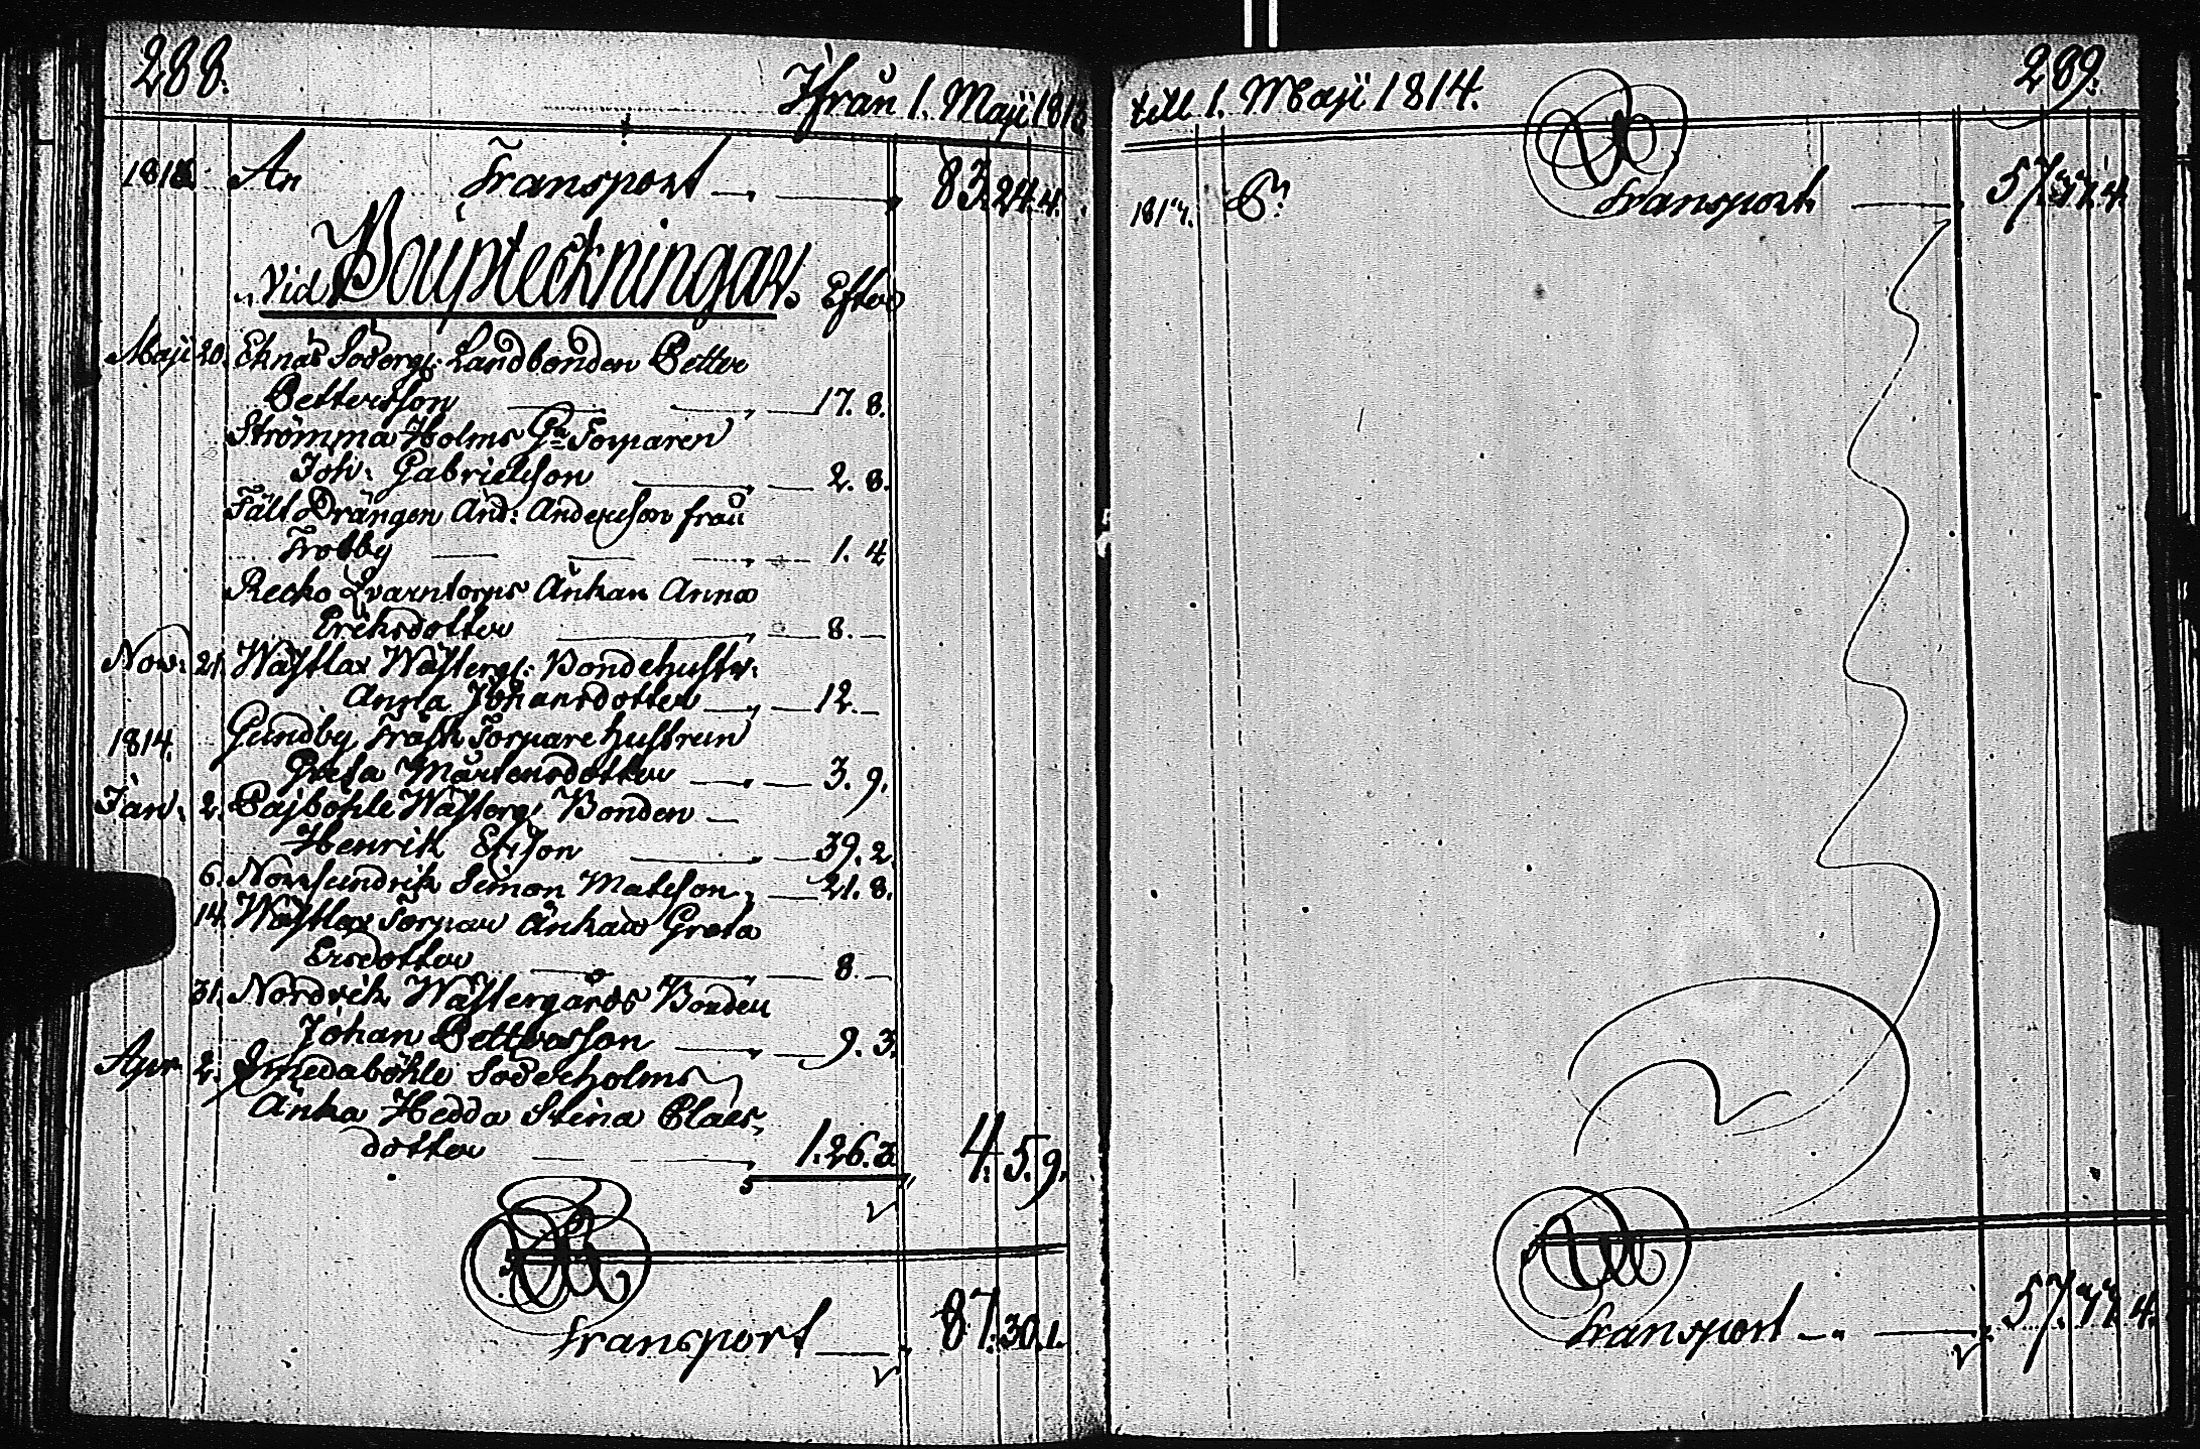 288.
Ifrån 1. Maji 1813
1813 An Transport 83. 24. 4.
Vid Boupteckningar. Efter
Maji 20. Eknäs Söderg: Landbonden Petter
Pettersson 17. 8.
Strömma Holms Torparen
Joh: Gabrielsson 2. 8.
Fält Drängen And: Andersson från
Trobby 1. 4
Recko Qvarntorps Änkan Anna
Eriksdotter 8. —
Nov: 21. Wästlax Wästerg: Bondehustr:
Anna Johansdotter 12. —
1814. Gundby Träsk Torpare hustrun
Greta Mårtensdotter 3. 9.
Jan: 2. Pajbohle Wästerg Bonden
Henrik Ersson 39. 2.
6. Norrsundvik Simon Matsson 21. 8.
14. Wästlax Torpare Änkan Greta
Ersdotter 8. —
31. Nordvik Wästergårds Bonden
Johan Pettersson 9. 3.
Apr. 2. Smedaböhle Söderholms
Änka Hedda Stina Claes-
dotter 1. 26. 3. 4. 5. 9.
Transport 87. 30. 1.
till 1. Maji 1814.
289.
1814. Transport 57. 4.
Transport 57. 4.